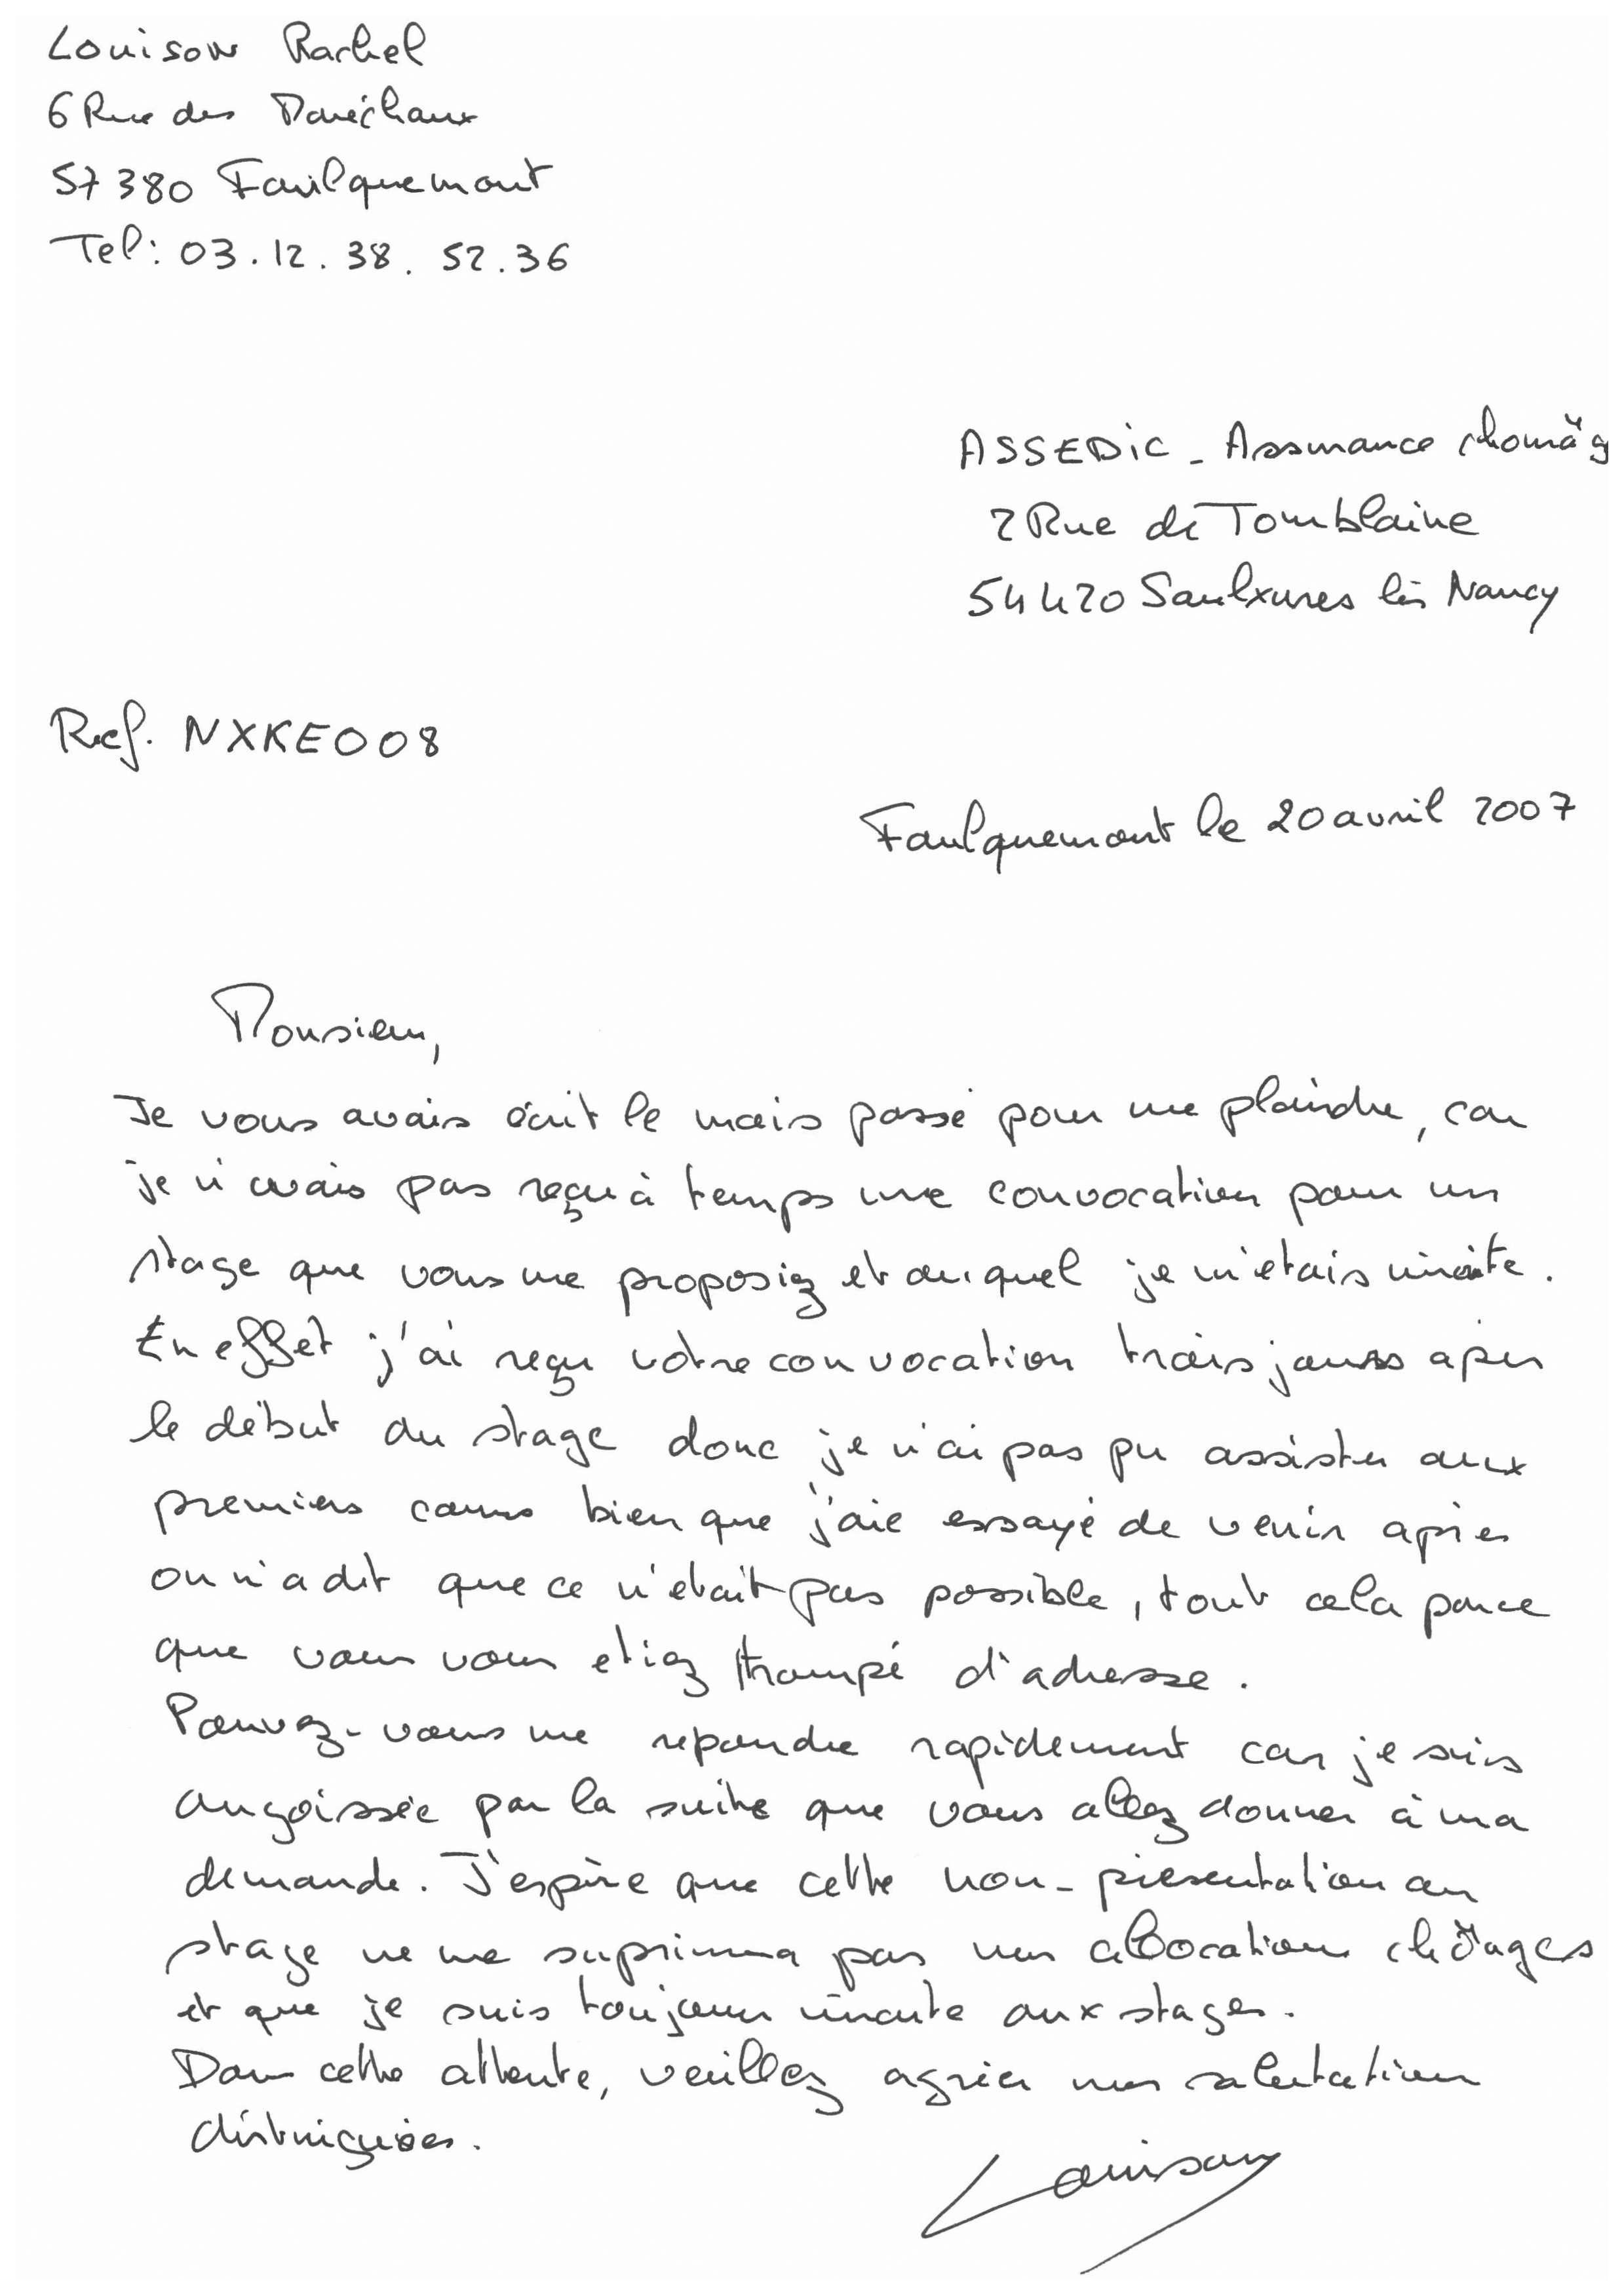 Louison Rachel
6 Rue des Maréchaux
57380 Faulquemont
Tel: 03.12.38.52.36
ASSEDIC - Assurance chomâg
2 Rue de Tomblaine
54420 Saulxures lès Nancy
Ref. NXKE008
Faulquemont le 20 avril 2007
Monsieur,
Je vous avais écrit le mois passé pour me plaindre, car
je n'avais pas reçu à temps une convocation pour un
stage que vous me proposiez et auquel je m'etais inscrite.
En effet j'ai reçu votre convocation trois jours après
le début du stage donc je n'ai pas pu assister aux
premiers cours bien que j'aie essayé de venir après
on m'a dit que ce n'etait pas possible, tout cela parce
que vous vous etiez trompé d'adresse.
Pouvez-vous me repondre rapidement car je suis
angoissée par la suite que vous allez donner à ma
demande. J'espère que cette non-présentation au
stage ne me suprimera pas mes allocations
et que je suis toujours inscrite aux stages.
Dans cette attente, veuillez agréer mes salutations
distinguées.
Louison